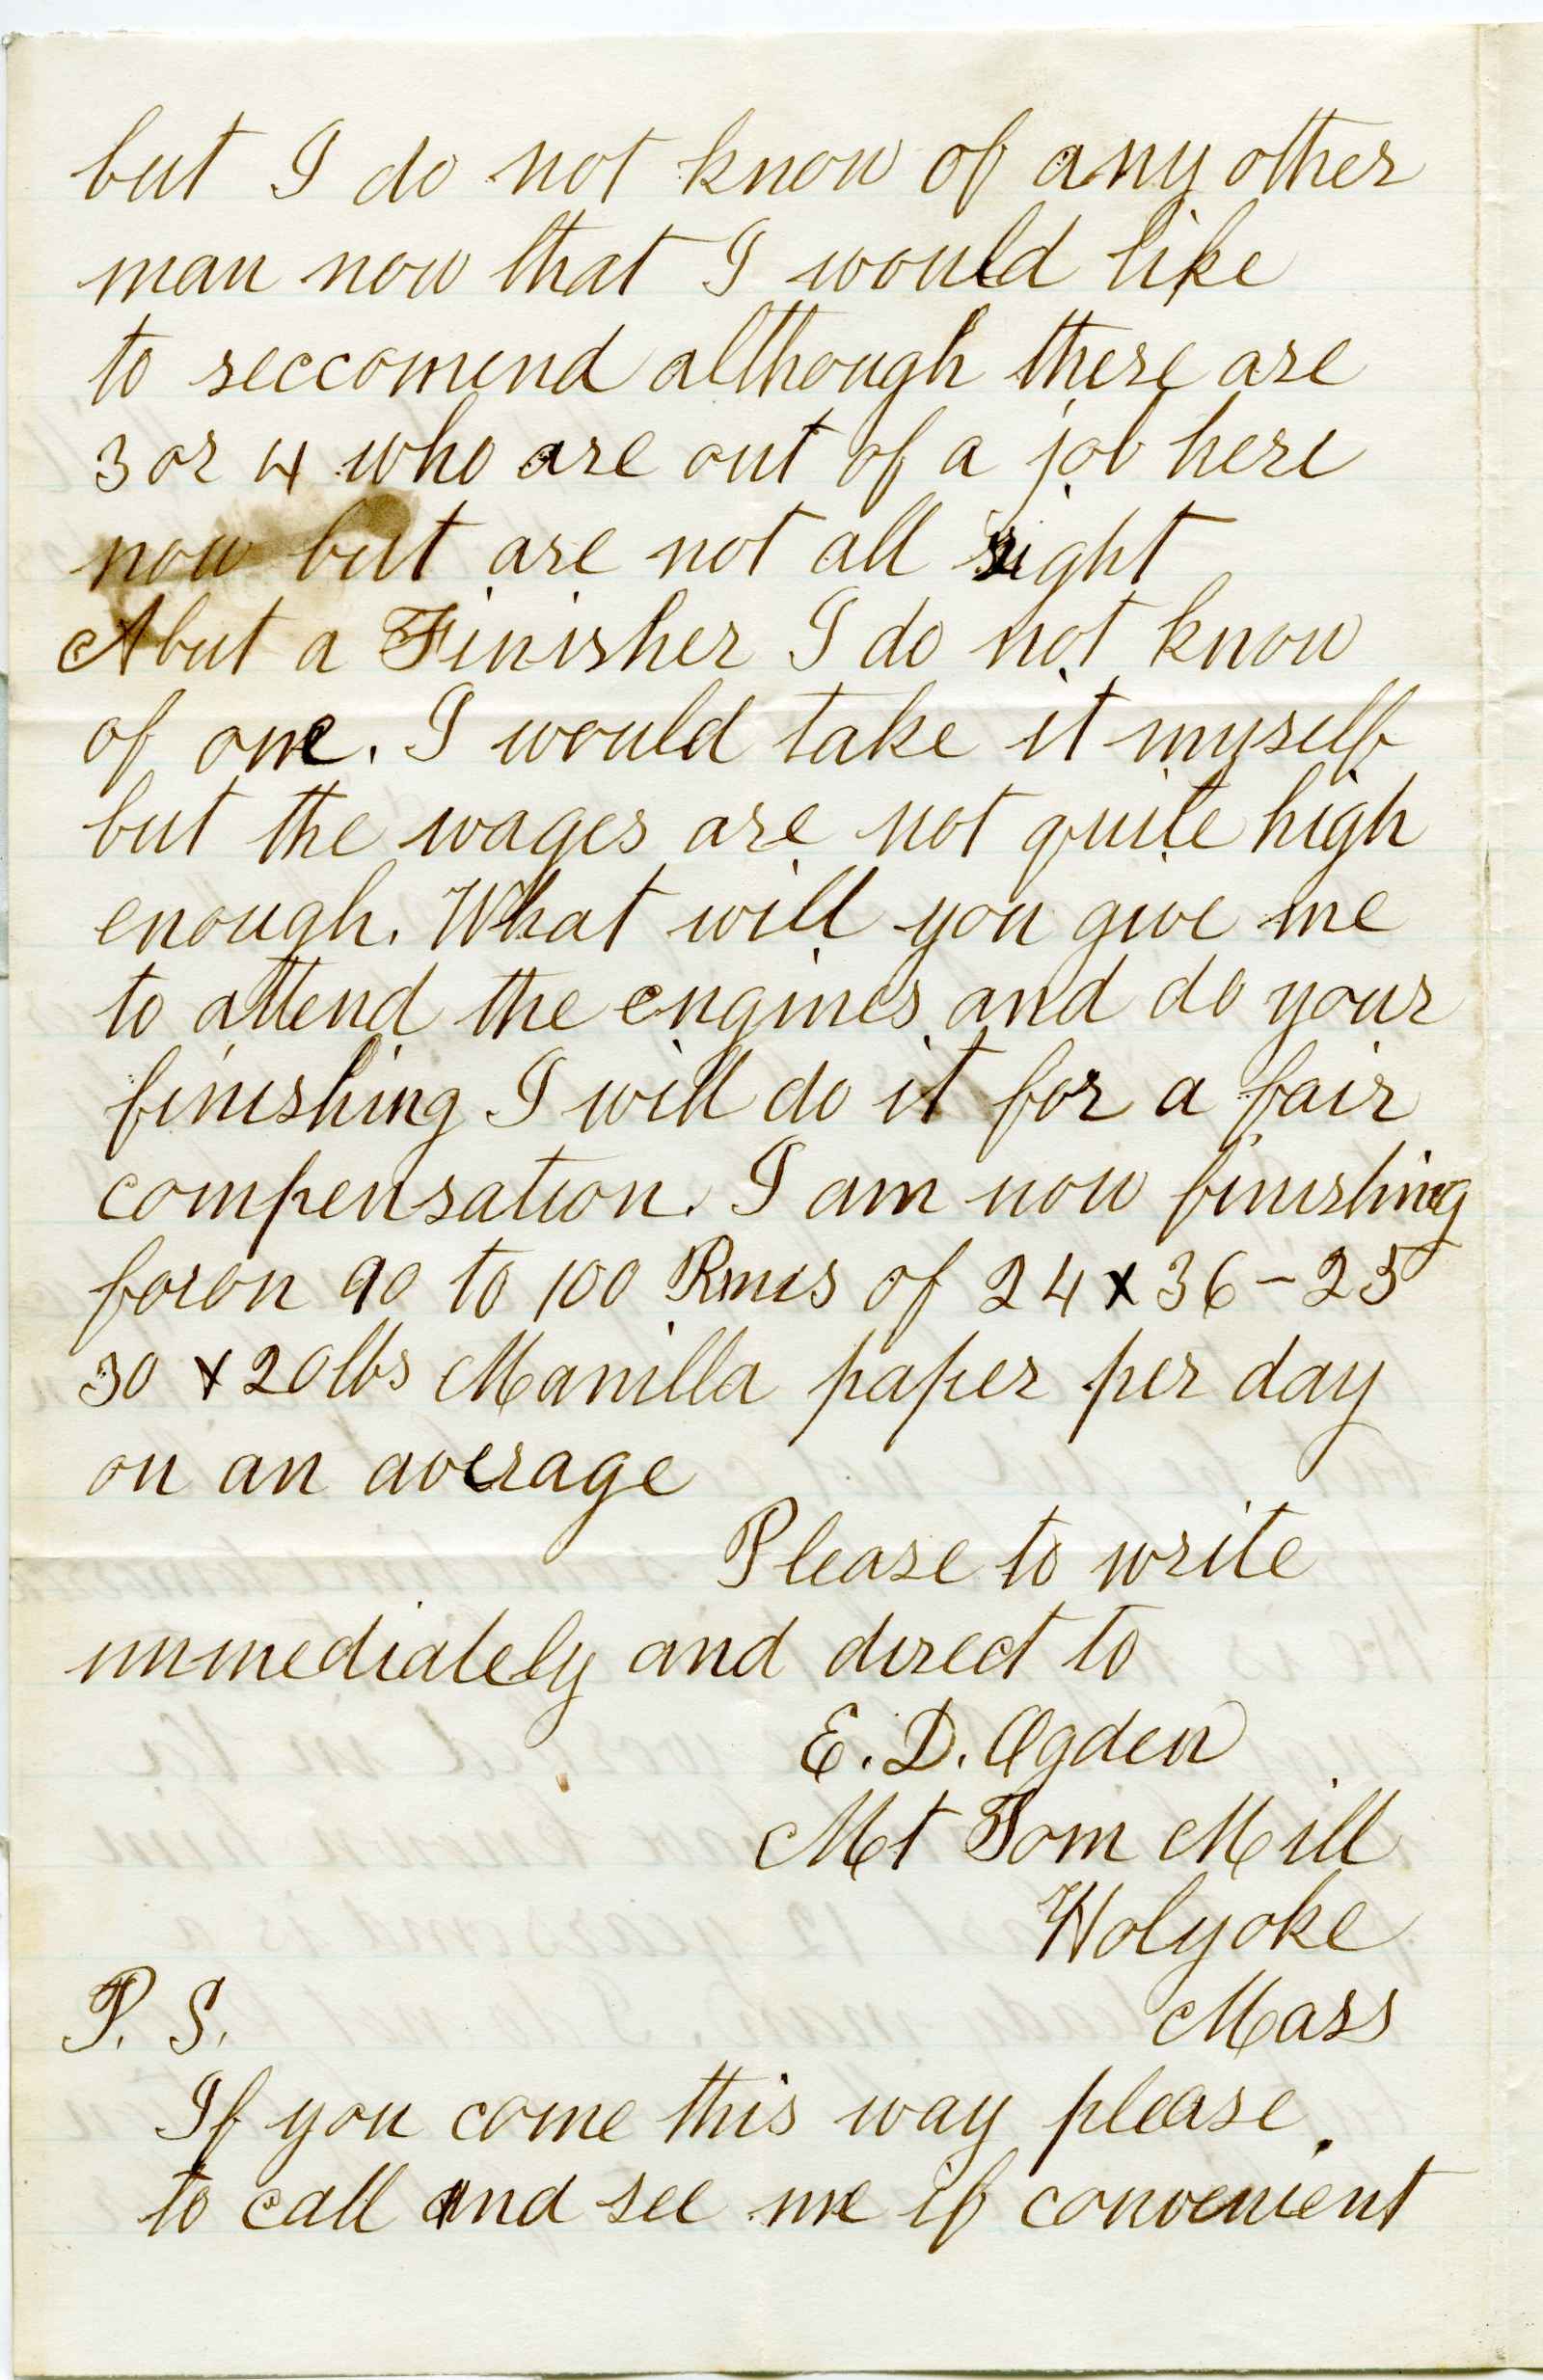 but I do not know of any other
man now that I would like
to reccomend although there are
3 or 4 who are out of a job here
now but are not all right
Abut a Finisher I do not know
of one. I would take it myself
but the wages are not quite high
enough. What will you give me
to attend the engines and do your
finishing I will do it for a fair
compensation. I am now finishing
90 to 100 Rms of 24 x 36 - 25
30 x 20 lbs Manilla paper per day
on an average
Please to write
immediately and direct to
E. D. Ogden
Mt Tom Mill
Holyoke
Mass
P. S.
If you come this way please.
to call and see me if convenient